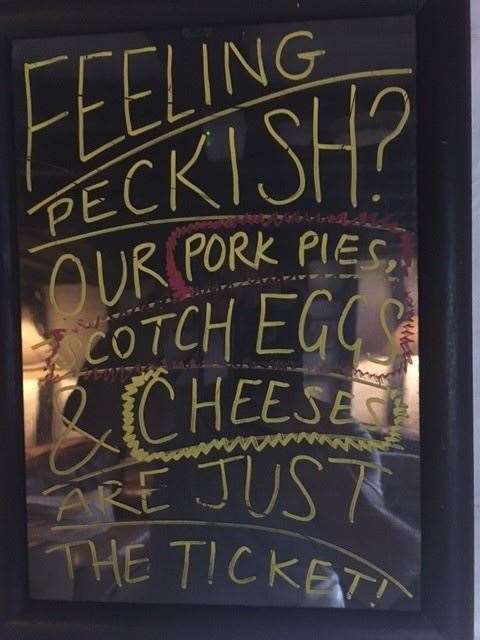 FEELING
PECKISH?
OUR PORK PIES,
SCOTCH EGGS
& CHEESES
ARE JUST
THE TICKET!